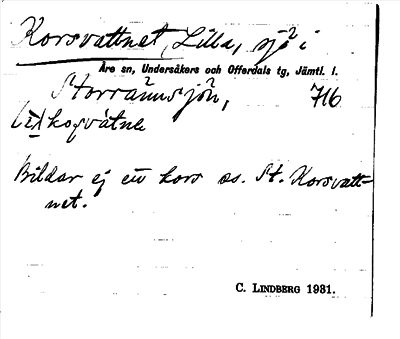 Korsvattnet, Lilla, sjö i
Åre sn, Undersåkers och Offerdals tg, Jämtl. l.
Storrännsjön, 716
kosvátne
Bildar ej ett kors ss. St. Korsvatt-
net.
C. LINDBERG 1931.